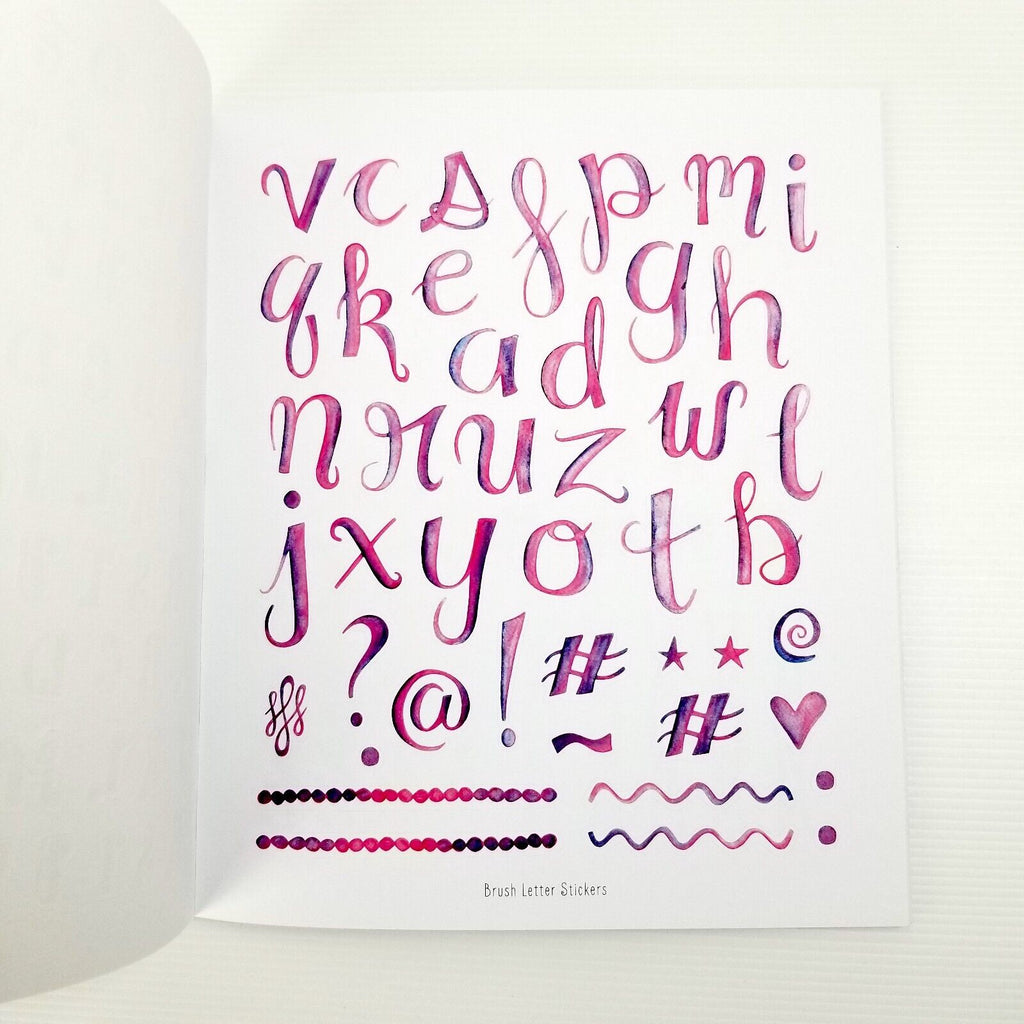 v c s f p m i
q k e g h
a d
n r u z w l
j x y o t b
? @ ! #
~ #
Brush Letter Stickers